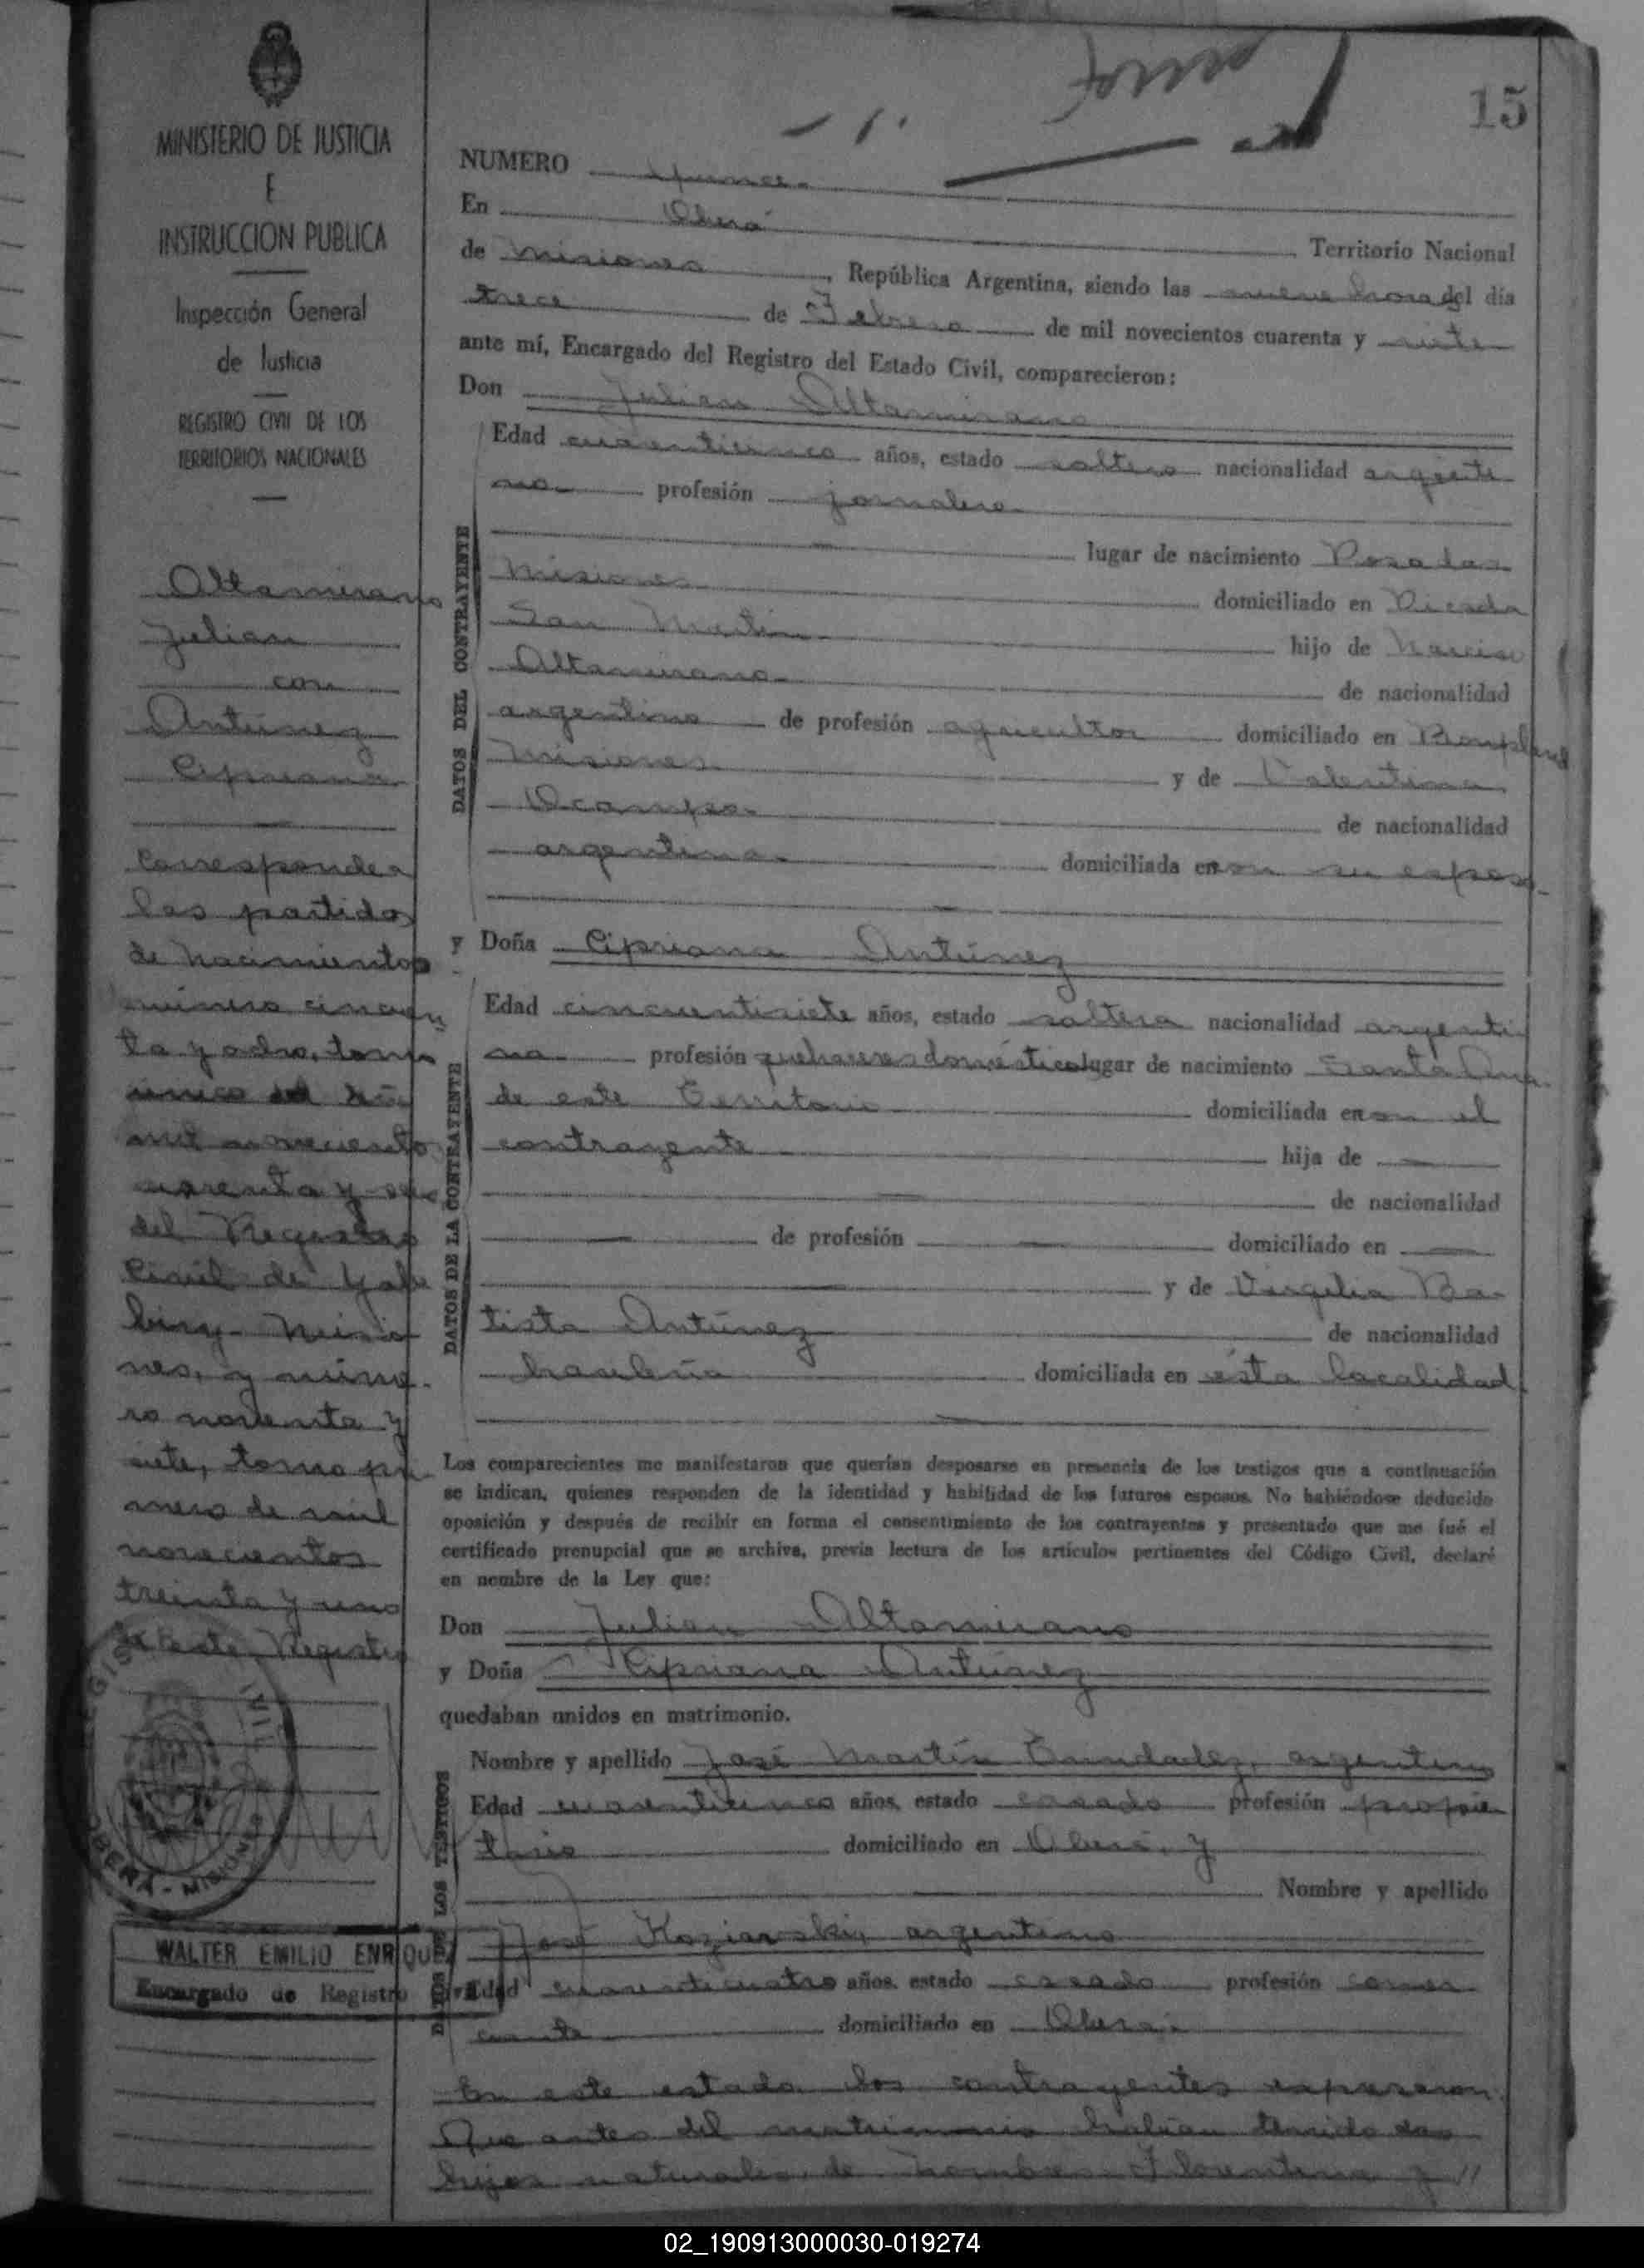 15
MINISTERIO DE JUSTICIA
E
INSTRUCCION PUBLICA
Inspección General
de Justicia
REGISTRO CIVIL DE LOS
TERRITORIOS NACIONALES
Altamirano
Julian
con
Antúnez
Cipriana
Corresponden
las partidas
de nacimientos
número cincuen
ta y ocho, tomo
único del año
mil novecientos
cuarenta y
del Registro
Civil de Yabe
biry - Misio
nes, y núme-
ro noventa y
siete, tomo pri-
mero de mil
novecientos
treinta y uno
de este Registro
REGISTRO CIVIL
OBERA - MISIONES
WALTER EMILIO ENRIQUEZ
Encargado de Registro Civil
NUMERO Quince.
En Oberá Territorio Nacional
de Misiones, República Argentina, siendo las nueve horas del día
trece de Febrero de mil novecientos cuarenta y siete
ante mí, Encargado del Registro del Estado Civil, comparecieron:
Don Julian Altamirano
DATOS DEL CONTRAYENTE
Edad cuarenticinco años, estado soltero nacionalidad argenti
no profesión jornalero
lugar de nacimiento Posadas
Misiones domiciliado en Picada
San Martín hijo de Narciso
Altamirano de nacionalidad
argentino de profesión agricultor domiciliado en Bonpland
Misiones y de Valentina
Ocampo de nacionalidad
argentina domiciliada en con su esposo
y Doña Cipriana Antúnez
DATOS DE LA CONTRAYENTE
Edad cincuentisiete años, estado soltera nacionalidad argenti
na profesión quehaceres domésticos lugar de nacimiento Santa Ana
de este Territorio domiciliada en con el
contrayente hija de
de nacionalidad
de profesión domiciliado en
y de Virgilia Ba-
tista Antúnez de nacionalidad
brasileña domiciliada en ésta localidad
Los comparecientes me manifestaron que querían desposarse en presencia de los testigos que a continuación
se indican, quienes responden de la identidad y habilidad de los futuros esposos. No habiéndose deducido
oposición y después de recibir en forma el consentimiento de los contrayentes y presentado que me fué el
certificado prenupcial que se archiva, previa lectura de los artículos pertinentes del Código Civil, declaré
en nombre de la Ley que:
Don Julian Altamirano
y Doña Cipriana Antúnez
quedaban unidos en matrimonio.
DATOS DE LOS TESTIGOS
Nombre y apellido José Martín argentino
Edad cuarenticinco años, estado casado profesión propie
tario domiciliado en Oberá, y
Nombre y apellido
José Koziarski, argentino
Edad cuarenticuatro años, estado casado profesión comer
ciante domiciliado en Oberá
En este estado los contrayentes expusieron:
Que antes del matrimonio habían tenido dos
hijos naturales de nombres Florentina y //
02_190913000030-019274